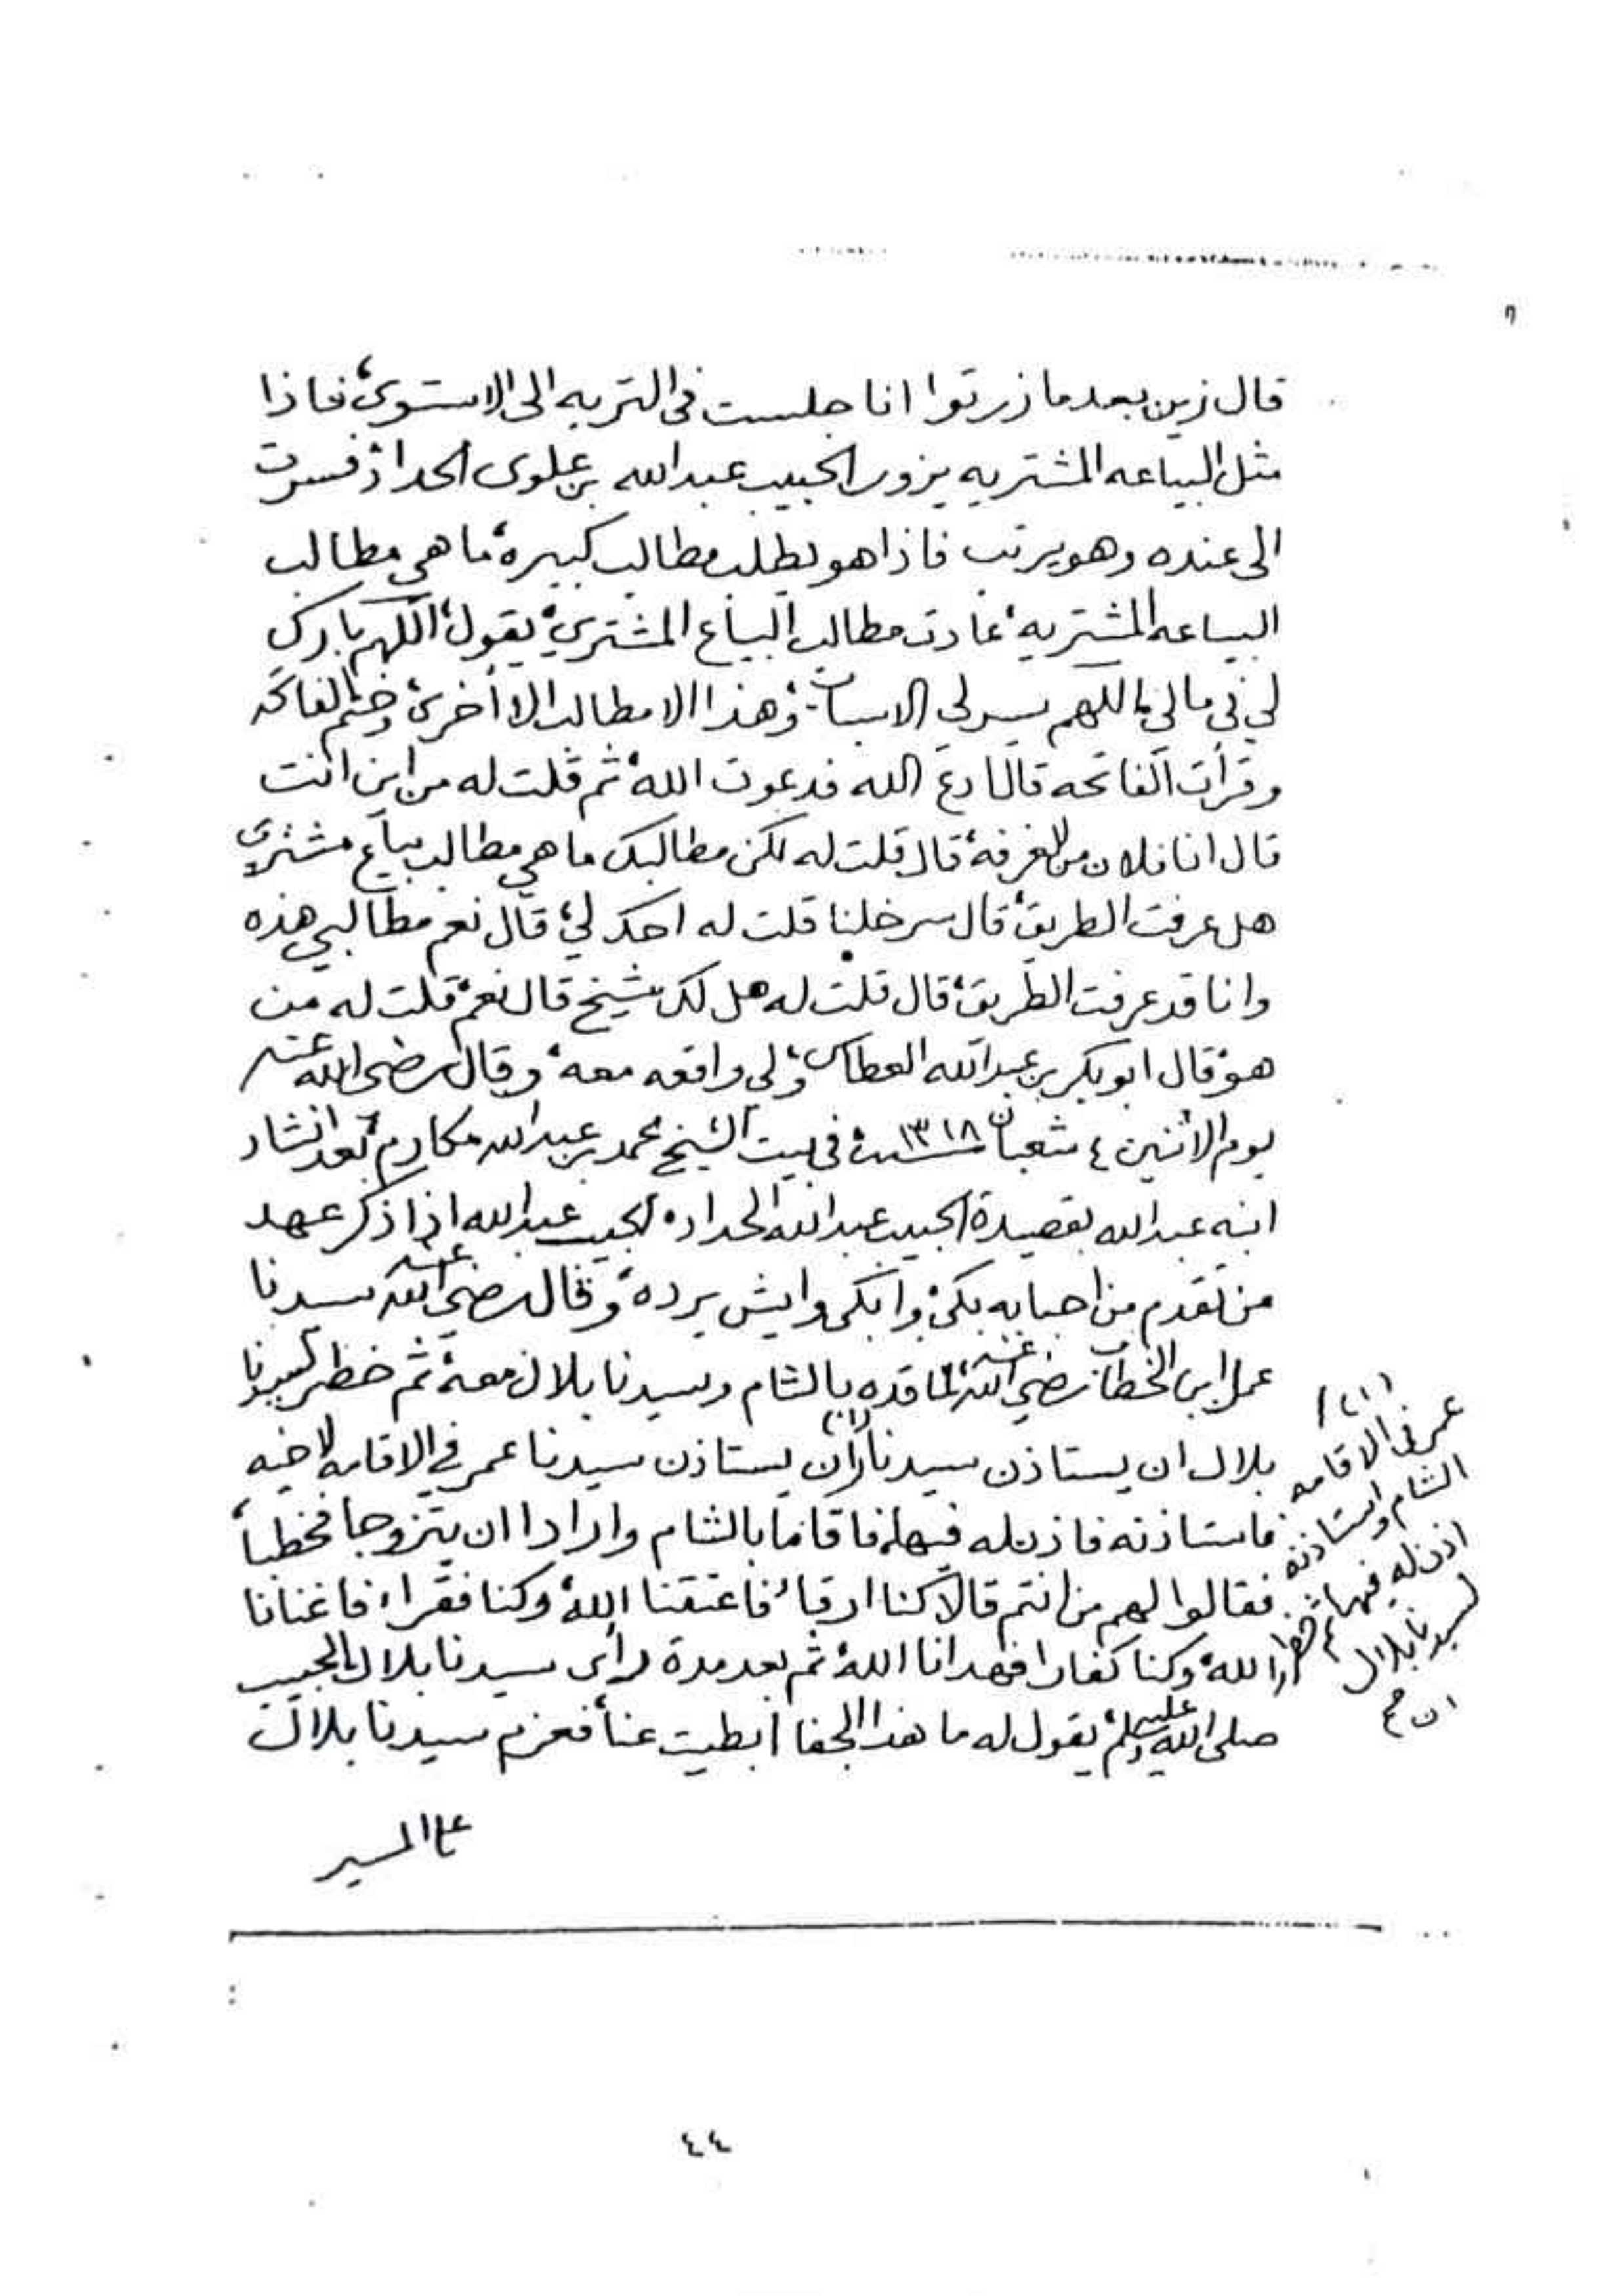 قال زين بعدما زرتوا انا جلست في التربه الى الاستوى فاذا
مثل البياعه المشتريه يزور الحبيب عبدالله بن علوى الحداد فسرت
الى عنده وهو يرتب فاذا هو يطلب مطالب كبيره ما هي مطالب
البياعه المشتريه عادت مطالب البياع المشتري يقول اللهم بارك
لي في مالي اللهم يسر لي الاسباب وهذا الا مطالب الا أخرى وختم الفاتحه
وقرأت الفاتحه قال ادع الله فدعوت الله ثم قلت له من اين انت
قال انا فلان من الغرفه قال قلت له لكن مطالبك ما هي مطالب بياع مشتري
هل عرفت الطريق قال سر خلنا قلت له احك لي قال نعم مطالبي هذه
وانا قد عرفت الطريق قال قلت له هل لك شيخ قال نعم قلت له من
هو قال ابوبكر بن عبدالله العطاس ولي واقعه معه وقال رضي الله عنه
يوم الاثنين ٤ شعبان سنة ١٣١٨ في بيت الشيخ محمد بن عبدالله مكارم بعد انشاد
ابنه عبدالله بقصيدة الحبيب عبدالله الحداد الحبيب عبدالله اذا ذكر عهد
من تقدم من احبابه بكى وابكى وايش يرده وقال رضي الله عنه سيدنا
عمر ابن الخطاب رضي الله عنه لما قده بالشام وسيدنا بلال معه ثم خطر لسيدنا
بلال ان يستاذن سيدنا (١) ان يستاذن سيدنا عمر في الاقامه لاخيه
فاستاذنه فاذن له فيها فاقاما بالشام وارادا ان يتزوجا فخطبا
فقالوا لهم من انتم قالا كنا ارقاء فاعتقنا الله وكنا فقراء فاغنانا
الله وكنا كفارا فهدانا الله ثم بعد مدة رأى سيدنا بلال الحبيب
صلى الله عليه وسلم يقول له ما هذا الجفا ابطيت عنا فعزم سيدنا بلال
على المسير
(١)
عمر في الاقامه
الشام واستاذنه
اذن له فيها ثم خطر
لسيدنا بلال
٤٤